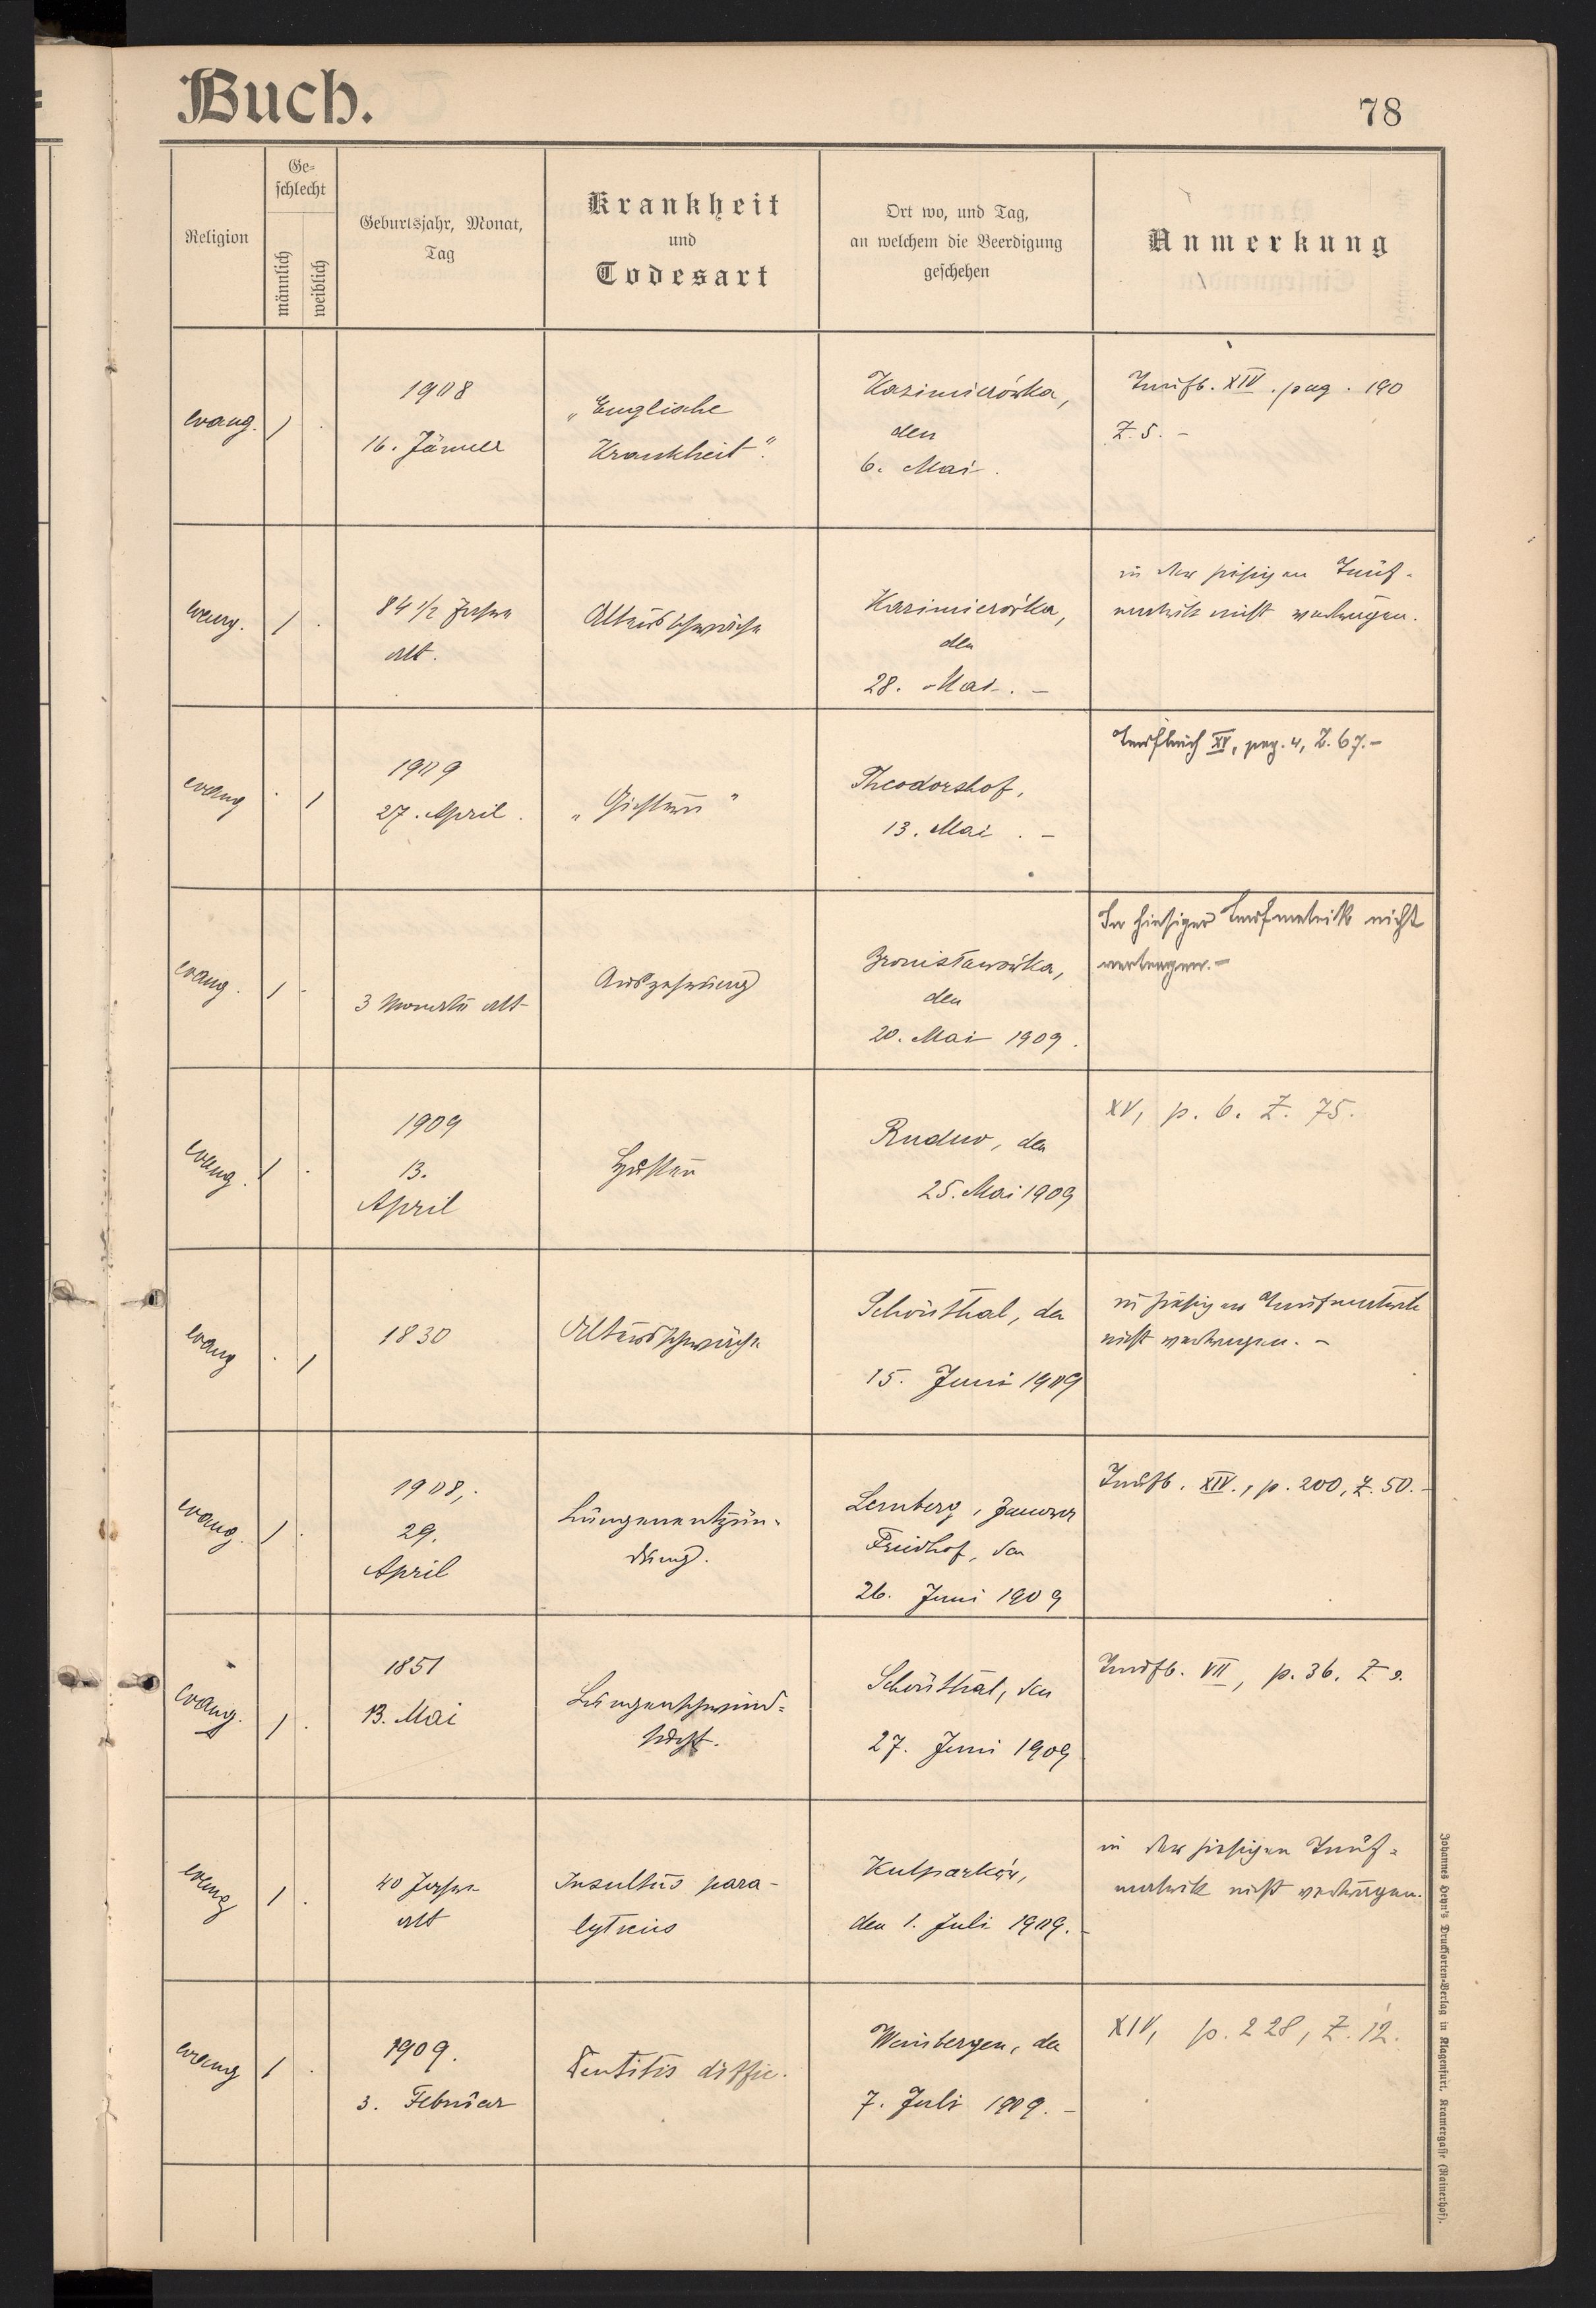 Buch.
78
Religion
Ge-
schlecht
männlich
weiblich
Geburtsjahr, Monat,
Tag
Krankheit
und
Todesart
Ort wo, und Tag,
an welchem die Beerdigung
geschehen
Anmerkung
evang. 1 .
1908
16. Jänner
„Englische
Krankheit“.
Kazimierówka,
den
6. Mai.
Taufb. XIV. pag. 190
Z. 5. -
evang. 1 .
84 1/2 Jahre
alt.
Altersschwäche
Kazimierówka,
den
28. Mai. -
in der hiesigen Tauf-
matrik nicht vertragen.
evang . 1
1909
27. April.
„Gichtern“
Theodorshof,
13. Mai. -
Taufbuch XV, pag. 4, Z. 67.-
evang. 1 .
3 Monate alt
Auszehrung
Bronisławówka,
den
20. Mai 1909.
In hiesiger Taufmatrik nicht
vertragen.-
evang. 1 .
1909
13.
April
Husten
Rudno, den
25. Mai 1909
XV, p. 6. Z. 75.
evang . 1
1830
Altersschwäche
Schönthal, den
15. Juni 1909
in hiesiger Taufmatrik
nicht vertragen. -
evang. 1 .
1908,
29.
April
Lungenentzün-
dung.
Lemberg, Janower
Friedhof, den
26. Juni 1909
Taufb. XIV., p. 200, Z. 50.-
evang. 1 .
1851
13. Mai
Lungenschwind-
sucht.
Schönthal, den
27. Juni 1909
Taufb. VII, p. 36. Z 2.
evang 1 .
40 Jahre
alt
Insultus para-
lyticus
Kulparków,
den 1. Juli 1909.-
in der hiesigen Tauf-
matrik nicht vertragen.
evang 1 .
1909.
3. Februar
Dentitis diffic.
Weinbergen, den
7. Juli 1909. -
XIV, p. 228, Z. 12.
Johannes Heyn's Drucksorten-Verlag in Klagenfurt, Kramergasse (Rainerhof).